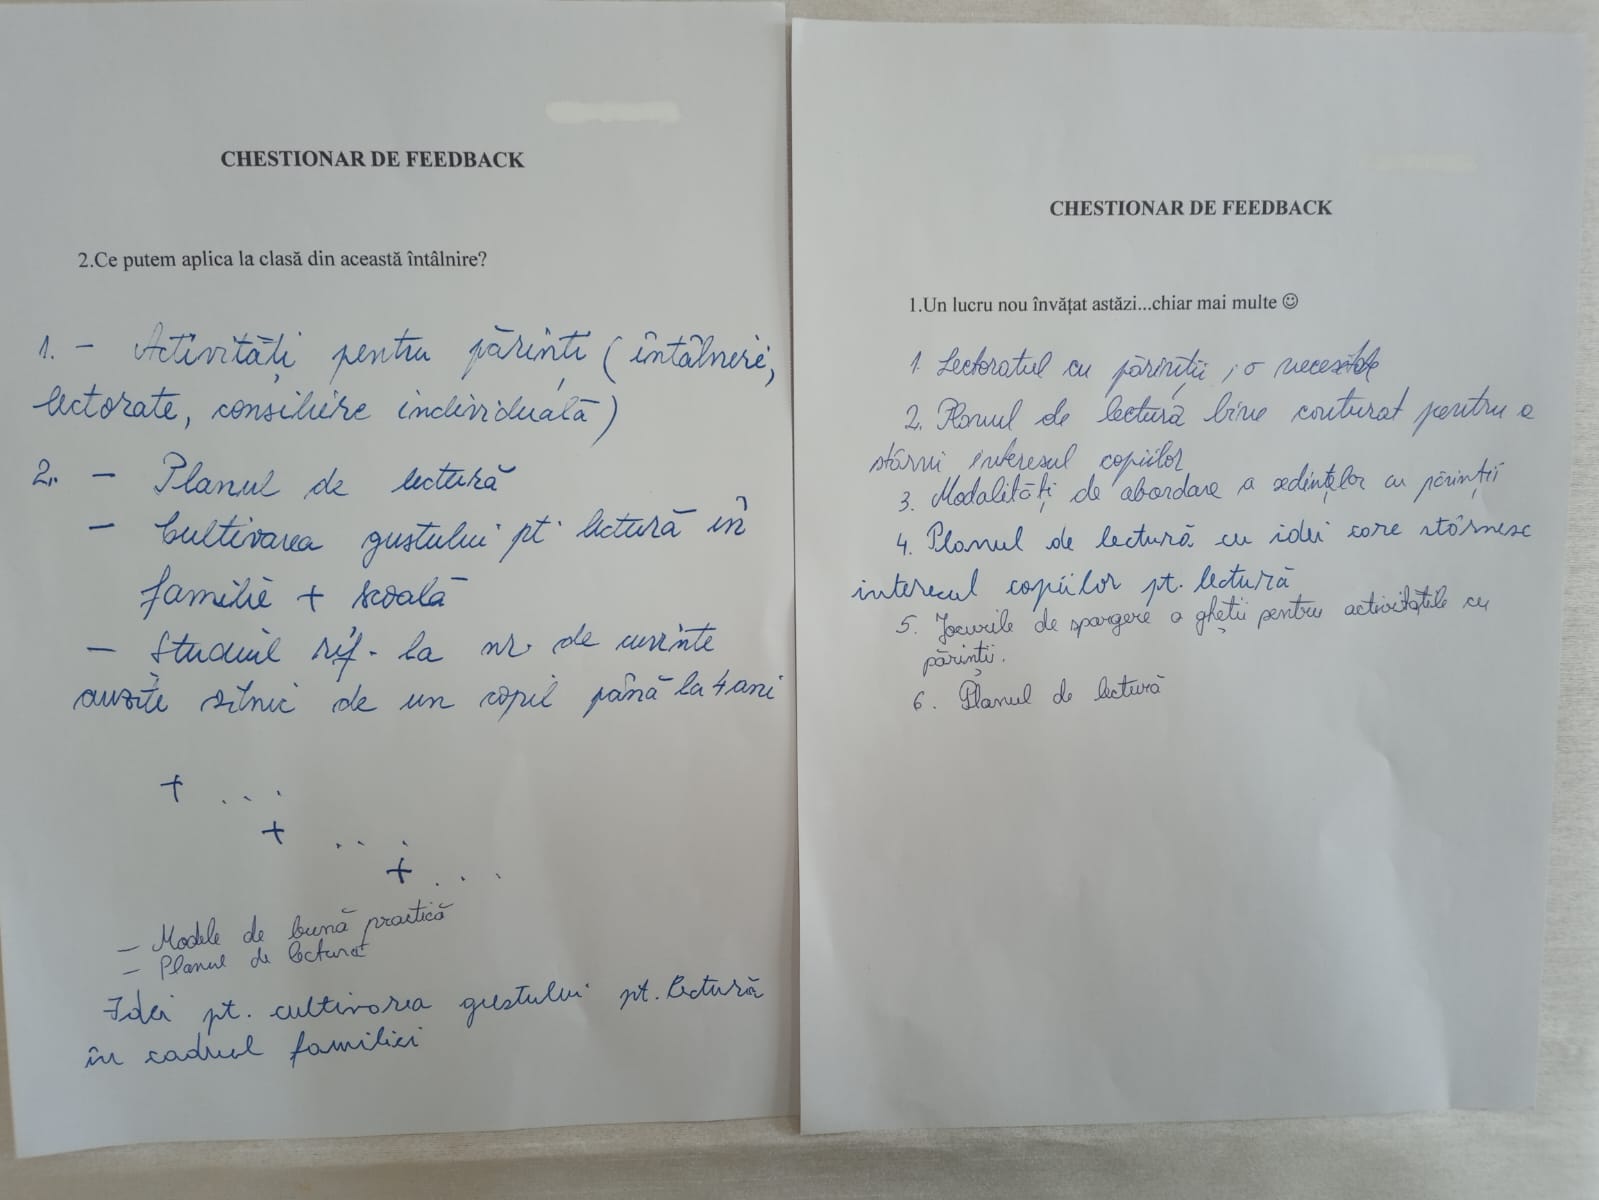 CHESTIONAR DE FEEDBACK
2.Ce putem aplica la clasă din această întâlnire?
1. – Activități pentru părinți (întâlniri,
lectorate, consiliere individuală)
2. – Planul de lectură
– Cultivarea gustului pt. lectură în
familie + școală
– Studiul rif. la nr. de cuvinte
auzite zilnic de un copil până la 4 ani
+ ...
+ ...
+ ...
– Modele de bună practică
– Planul de lectură
Idei pt. cultivarea gustului pt. lectură
în cadrul familiei
CHESTIONAR DE FEEDBACK
1.Un lucru nou învățat astăzi...chiar mai multe ☺
1. Lectoratul cu părinții, o necesitate
2. Planul de lectură bine conturat pentru a
stârni interesul copiilor
3. Modalități de abordare a ședințelor cu părinții
4. Planul de lectură cu idei care stârnesc
interesul copiilor pt. lectură
5. Jocurile de spargere a gheții pentru activitățile cu
părinții.
6. Planul de lectură